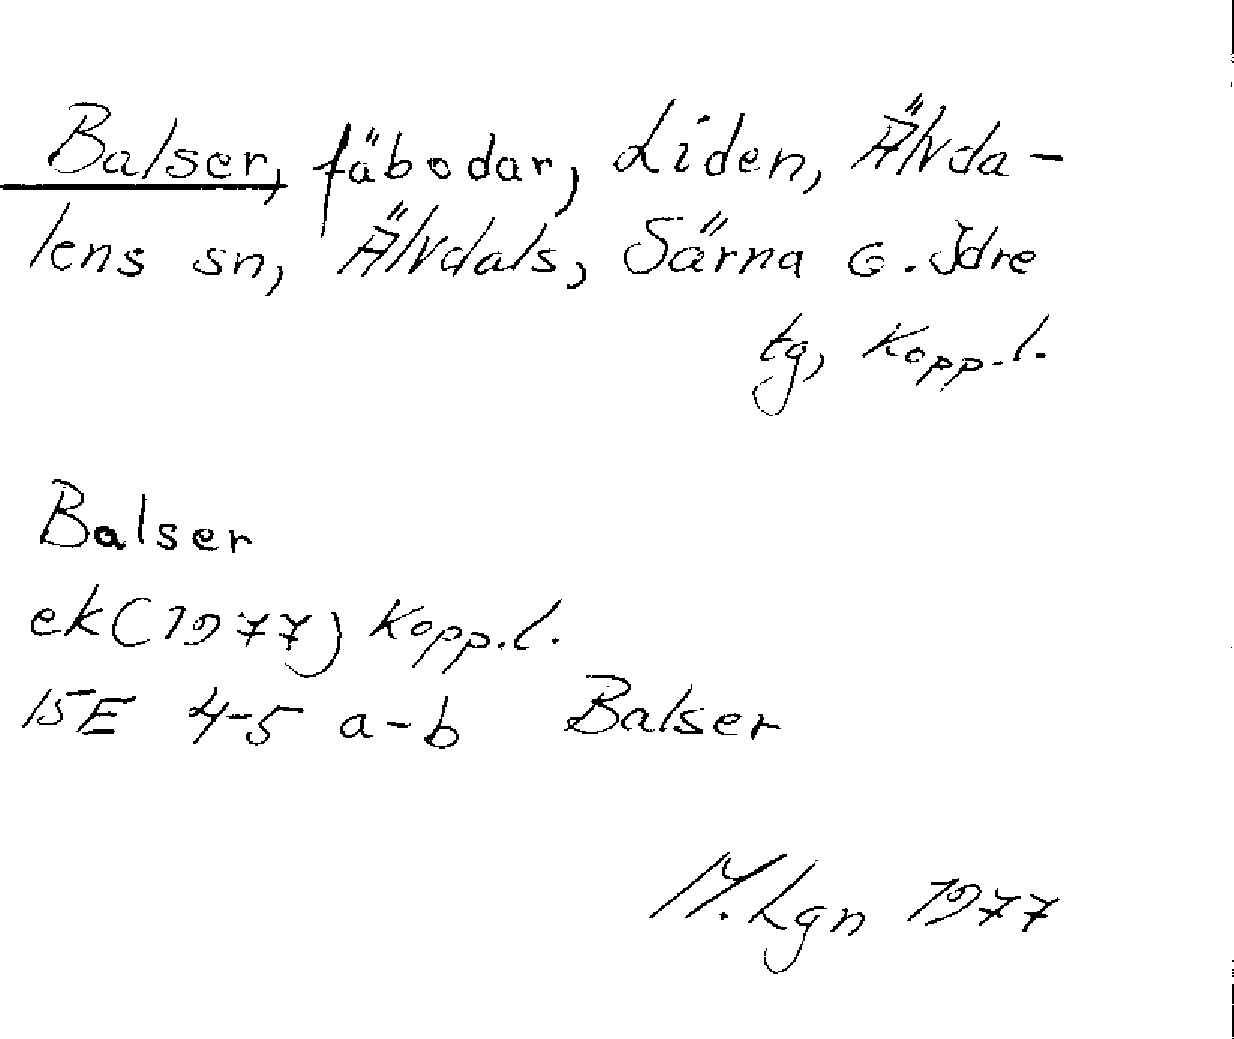 Balser, fäbodar, Liden, Älvda-
lens sn, Älvdals, Särna o. Idre
tg, Kopp.l.
Balser
ek (1977) Kopp.l.
15E 4-5 a-b Balser
M. Lgn 1977